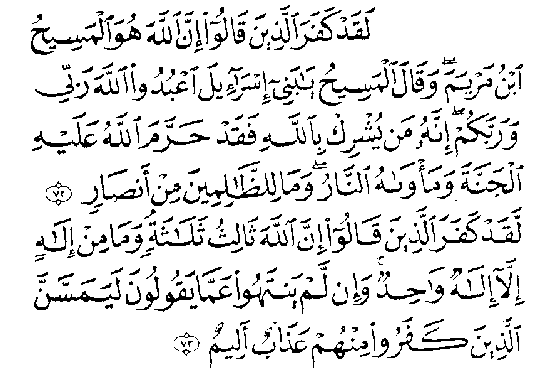 لَقَدْ كَفَرَ ٱلَّذِينَ قَالُوٓا۟ إِنَّ ٱللَّهَ هُوَ ٱلْمَسِيحُ
ٱبْنُ مَرْيَمَ ۖ وَقَالَ ٱلْمَسِيحُ يَـٰبَنِىٓ إِسْرَٰٓءِيلَ ٱعْبُدُوا۟ ٱللَّهَ رَبِّى
وَرَبَّكُمْ ۖ إِنَّهُۥ مَن يُشْرِكْ بِٱللَّهِ فَقَدْ حَرَّمَ ٱللَّهُ عَلَيْهِ
ٱلْجَنَّةَ وَمَأْوَىٰهُ ٱلنَّارُ ۖ وَمَا لِلظَّـٰلِمِينَ مِنْ أَنصَارٍ ٧٢
لَّقَدْ كَفَرَ ٱلَّذِينَ قَالُوٓا۟ إِنَّ ٱللَّهَ ثَالِثُ ثَلَـٰثَةٍ ۘ وَمَا مِنْ إِلَـٰهٍ
إِلَّآ إِلَـٰهٌ وَٰحِدٌ ۚ وَإِن لَّمْ يَنتَهُوا۟ عَمَّا يَقُولُونَ لَيَمَسَّنَّ
ٱلَّذِينَ كَفَرُوا۟ مِنْهُمْ عَذَابٌ أَلِيمٌ ٧٣